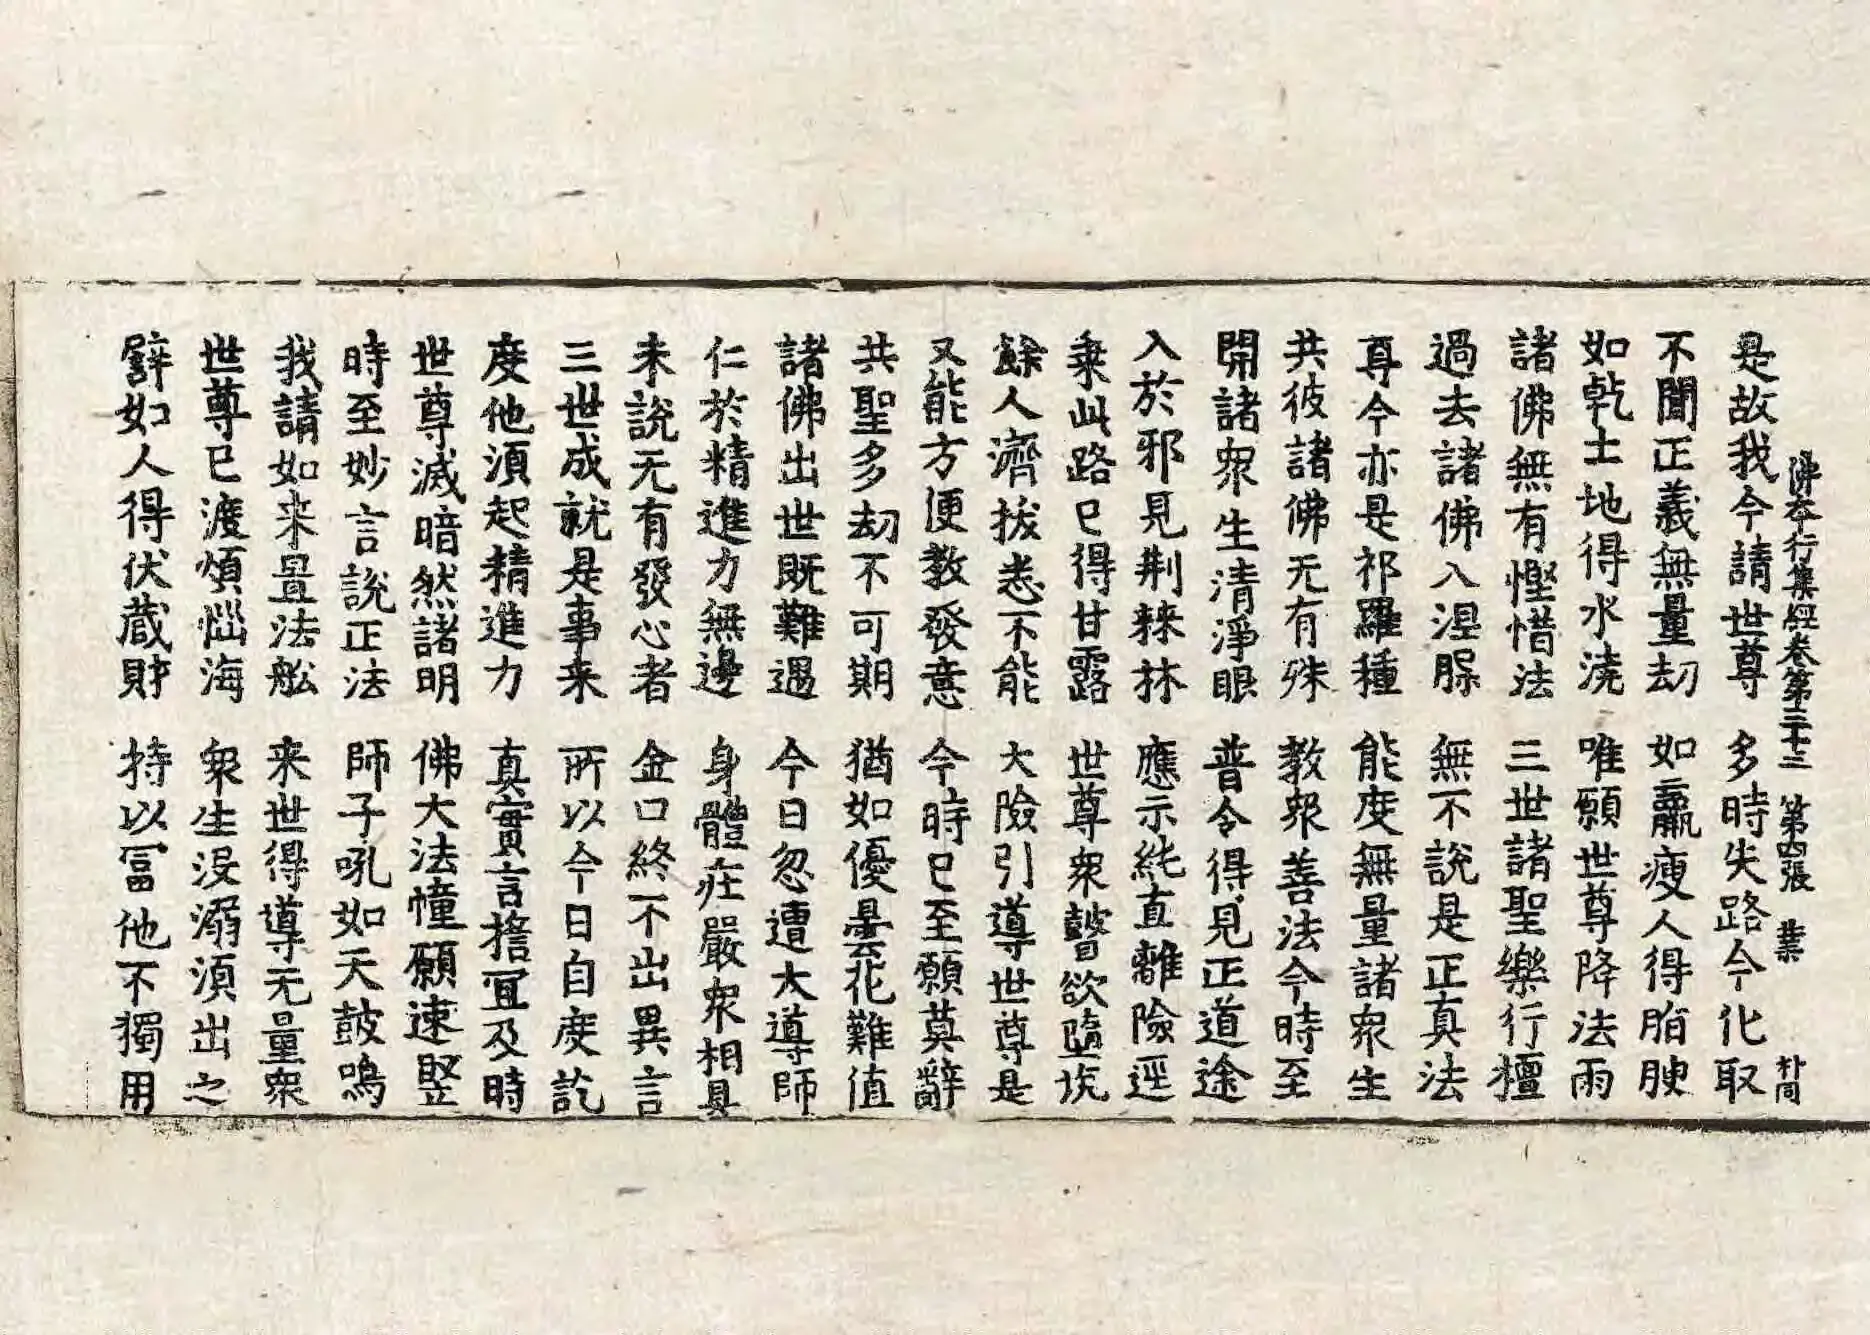 佛夲行集經卷第三十三　第四張　業　朴同
是故我今請世尊　多時失路今化取
不聞正義無量劫　如羸瘦人得脂腴
如乹土地得水澆　唯願世尊降法雨
諸佛無有慳惜法　三世諸聖樂行檀
過去諸佛入涅脲　無不說是正真法
尊今亦是祁羅種　能度無量諸衆生
共彼諸佛无有殊　教衆善法今時至
開諸衆生清淨眼　普令得見正道途
入於邪見荆棘林　應示純直離險逕
乗此路已得甘露　世尊衆瞽欲墮坑
餘人濟拔悉不能　大險引導世尊是
又能方便教發意　今時已至願莫辭
共聖多劫不可期　猶如優曇花難值
諸佛出世既難遇　今日忽遭大導師
仁於精進力無邊　身體莊嚴衆相具
未說无有發心者　金口終不出異言
三世成就是事来　所以今日自度訖
度他湏起精進力　真實言擔冝及時
世尊滅暗然諸明　佛大法幢願速竪
時至妙言說正法　師子吼如天鼓鳴
我請如来置法舩　来世得導无量衆
世尊已渡煩惱海　衆生没溺湏出之
辟如人得伏蔵財　持以冨他不獨用